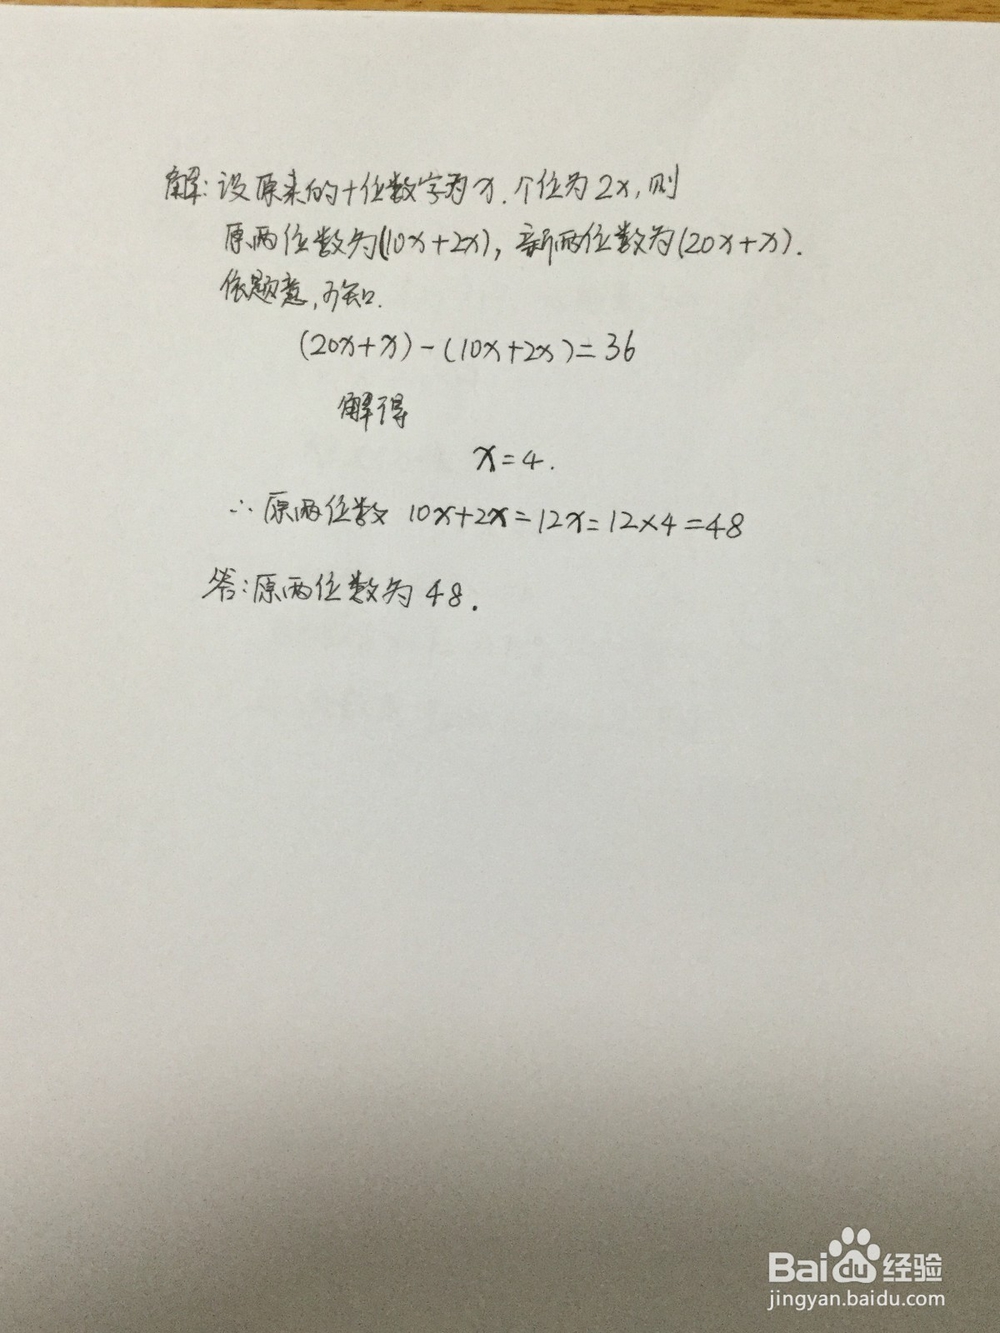 解:设原来的十位数字为x.个位为2x,则
原两位数为(10x+2x),新两位数为(20x+x).
依题意,可知.
(20x+x)-(10x+2x)=36
解得
x=4.
∴原两位数 10x+2x=12x=12×4=48
答:原两位数为 48.
Baidu经验
jingyan.baidu.com